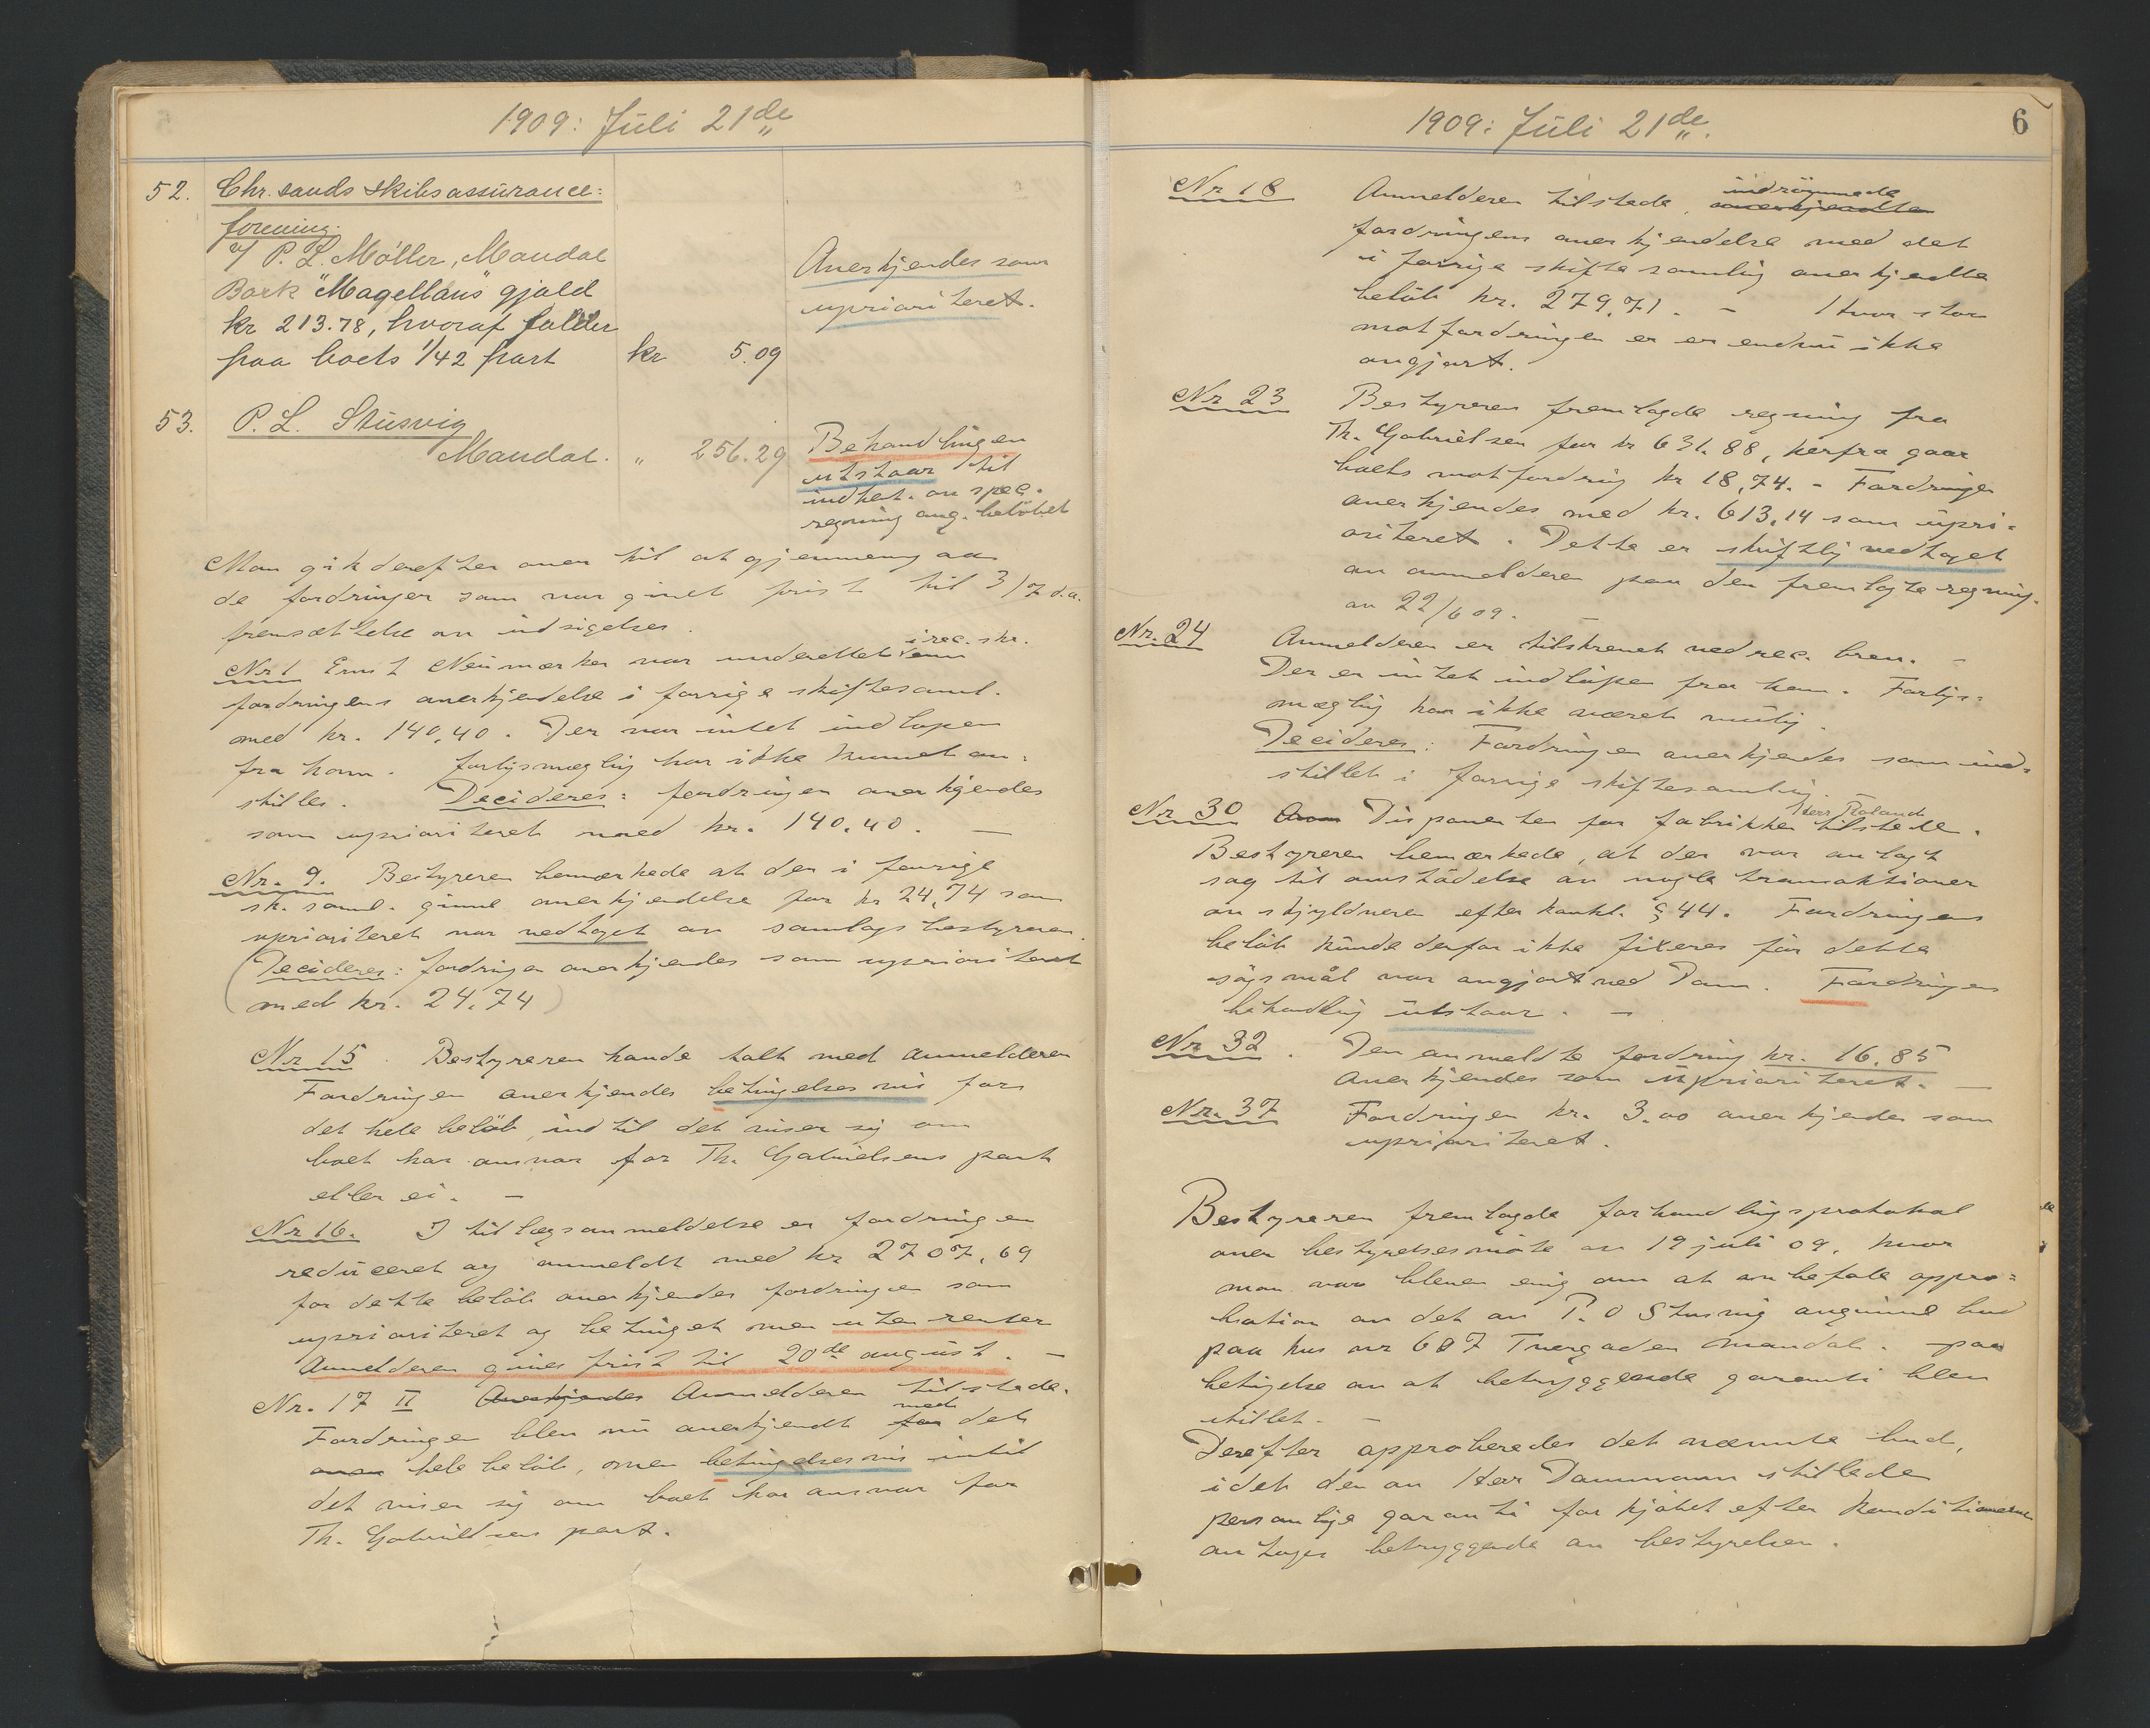 1909: Juli 21de
52. Chr.sands Skibsassurance=
forening.
v/ P. L. Møller, Mandal
Bark "Magellans" gjæld
kr 213.78, hvoraf falder
paa boets 1/42 part kr 5.09
Anerkjendes som
uprioriteret.
53. P. L. Stusvig
Mandal. " 256.29
Behandlingen
utstaar til
indhent. av spec.
regning ang. beløbet
Man gik derefter over til at gjennemgaa
de fordringer som var givet frist til 3/7 d.a.
fremsættelse av indsigelser.
i rec. skr.
Nr 1 Ernst Neumærker var underettet om
fordringens anerkjendelse i forrige skiftesaml.
med kr. 140,40. Der var intet indløpen
fra ham. Forligsmægling har ikke kunnet an=
stilles. Decideres: fordringen anerkjendes
som uprioriteret med kr. 140.40. —
Nr. 9. Bestyreren bemærkede at den i forrige
sk. saml. givne anerkjendelse for kr 24,74 som
uprioriteret var vedtaget av samlagsbestyreren.
(Decideres: fordringen anerkjendes som uprioriteret
med kr. 24,74)
Nr 15. Bestyreren havde talt med anmelderen
Fordringen anerkjendes betingelsesvis for
det hele beløb, indtil det viser sig om
boet har ansvar for Th. Gabrielsens part
eller ei. —
Nr 16. I tillægsanmeldelse er fordringen
reduceret og anmeldt med kr 2707,69
for dette beløb anerkjendes fordringen som
uprioriteret og betinget men uten renter
Anmelderen gives frist til 20de august. —
Nr. 17 II Anerkjendes Anmelderen tilstede.
med
Fordringen blev nu anerkjendt for det
hele beløb, men betingelsesvis intil
det viser sig om boet har ansvar for
Th. Gabrielsens part.
1909: Juli 21de.
6
indrømmede
Nr 18 Anmelderen tilstede, anerkjendte
fordringens anerkjendelse med det
i forrige skiftesamling anerkjendte
beløb kr. 279,71. — Hvor stor
motfordringen er er endnu ikke
avgjort.
Nr 23 Bestyreren fremlagde regning fra
Th. Gabrielsen for kr 631.88, herfra gaar
boets motfordring kr 18,74. - Fordringen
anerkjendes med kr. 613,14 som upri=
oriteret. Dette er skriftlig vedtaget
av anmelderen paa den fremlagte regning.
av 22/6 09. —
Nr. 24 Anmelderen er tilskrevet ved rec. brev. —
Der er intet indløpen fra ham. Forligs=
mægling har ikke været mulig.
Decideres: Fordringen anerkjendes som ind=
stillet i forrige skiftesamling.
Herr Roland
Nr 30 Disponenten for fabrikken tilstede.
Bestyreren bemærkede, at der var anlagt
sag til omstødelse av nogle transaktioner
av skyldneren efter konkl. § 44. Fordringens
beløb kunde derfor ikke fixeres før dette
søgsmål var avgjort ved Dom. Fordringens
behandling utstaar. —
Nr 32. Den anmeldte fordring kr. 16,85
anerkjendes som uprioriteret. —
Nr. 37 Fordringen kr. 3.00 anerkjendes som
uprioriteret.
Bestyreren fremlagde forhandlingsprotokol
over bestyrelsesmøte av 19 juli 09, hvor
man var bleven enig om at anbefale appro=
bation av det av P. O Stusvig avgivne bud
paa hus nr 607 Tvergaden Mandal. paa
betingelse av at betryggende garanti blev
stillet. —
Derefter approberedes det nævnte bud,
idet den av Herr Dammann stillede
personlige garanti for kjøbet efter konditionerne
antages betryggende av bestyrelsen.